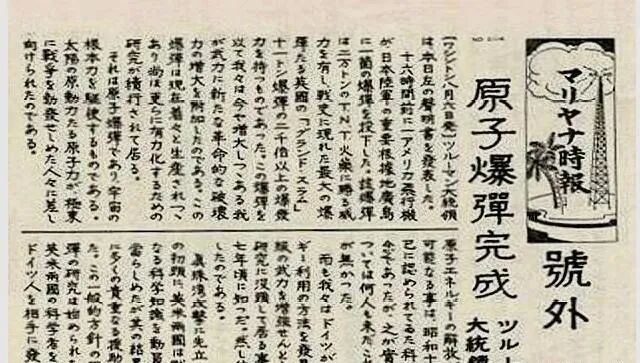 マリヤナ時報
號外
原子爆彈完成
ツル
大統領
【ワシントン八月六日発】ツルーマン大統領
は本日左の聲明書を發表した。
十六時間前に一アメリカ飛行機
が日本陸軍の重要根據地廣島
に一箇の爆彈を投下した。該爆彈
は二万トンのTNT火薬に勝る威
力を有し戰史に現れた最大の爆
彈たる英國の「グランド スラム」
十一トン爆彈の二千倍以上の爆發
力を持つものであった。この爆彈を
以て我々は今や増大しつゝある我
が武力に新たな革命的な破壊
力の増大を附加したのである。この
爆彈は現在着々と生産されつゝ
あり尚ほ更らに有力化するための
研究が續行されて居る。
それは原子爆彈であり宇宙の
根本力を駆使するものである。
太陽の原動力たる原子力が極東
に戰爭を勃發せしめた人々に差し
向けられたのである。
原子エネルギーの解放
可能なる事は、昭和十
已に認められてゐた科
念であったが、之が實
ついては何人も未だこ
が無かった。
而も我々はドイツが
ギー利用の方法を發
の武力を増強せんと
研究に没頭して居る事
七年頃に知った。然し
したのである。
眞珠湾攻撃に先立
の初頭に、英米兩國は
なる科學知識を動員
當らしめたが其の結
に多くの貴重なる援助
た。この一般的方針の
彈の研究は始められ
英米兩國の科學者
ドイツ人を相手に發